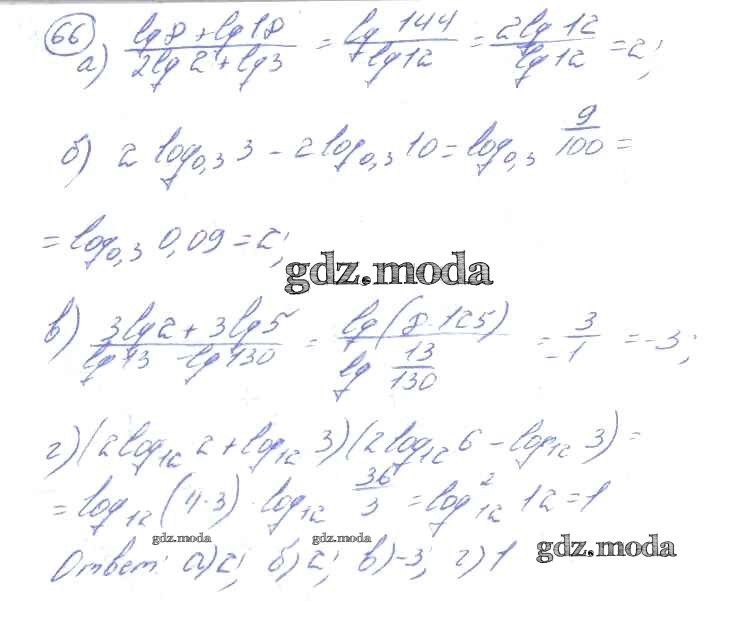 66
а) (lg 8 + lg 18)/(2lg 2 + lg 3) = lg 144/lg 12 = 2lg 12/lg 12 = 2;
б) 2 log₀,₃ 3 - 2 log₀,₃ 10 = log₀,₃ 9/100 =
= log₀,₃ 0,09 = 2;
gdz.moda
в) (3lg 2 + 3lg 5)/(lg 13 - lg 130) = lg(8·125)/lg 13/130 = 3/-1 = -3;
г) (2log₁₂ 2 + log₁₂ 3)(2log₁₂ 6 - log₁₂ 3) =
= log₁₂ (4·3) · log₁₂ 36/3 = log²₁₂ 12 = 1
gdz.moda gdz.moda
Ответ: а) 2; б) 2; в) -3; г) 1
gdz.moda